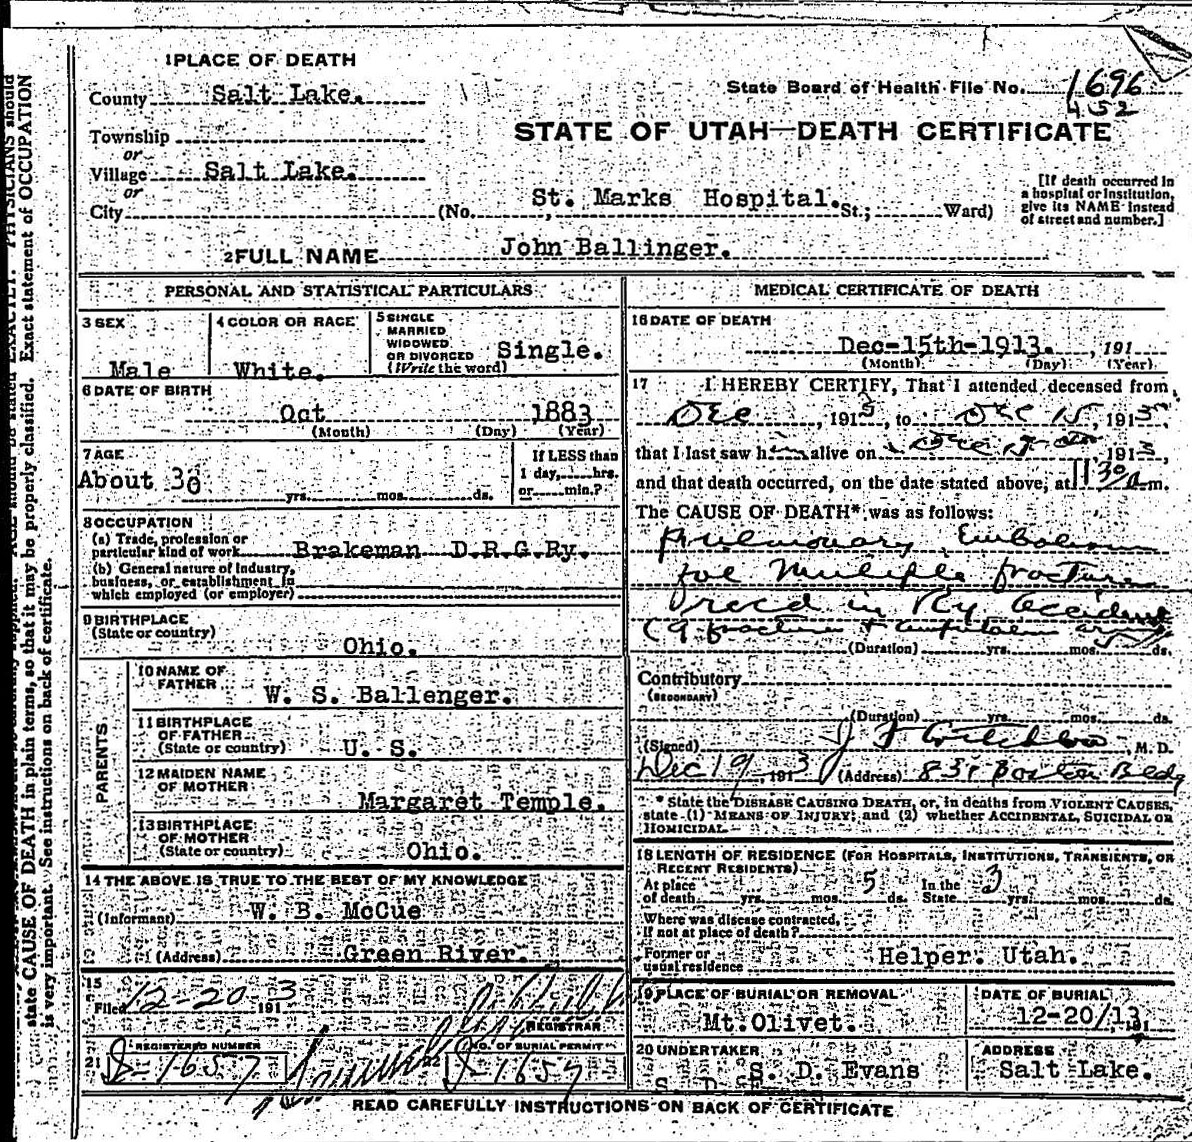 1 PLACE OF DEATH
County Salt Lake.
State Board of Health File No. 1696
452
Township
or
STATE OF UTAH—DEATH CERTIFICATE
Village Salt Lake.
or
City (No. St. Marks Hospital. St.; Ward)
[If death occurred in
a hospital or institution,
give its NAME instead
of street and number.]
2 FULL NAME John Ballinger.
PERSONAL AND STATISTICAL PARTICULARS
3 SEX
Male
4 COLOR OR RACE
White.
5 SINGLE
MARRIED
WIDOWED
OR DIVORCED
(Write the word)
Single.
6 DATE OF BIRTH
Oct 1883
(Month) (Day) (Year)
7 AGE
About 30 yrs. mos. ds.
If LESS than
1 day, hrs.
or min.?
8 OCCUPATION
(a) Trade, profession or
particular kind of work Brakeman D.R.G.Ry.
(b) General nature of industry,
business, or establishment in
which employed (or employer)
9 BIRTHPLACE
(State or country)
Ohio.
PARENTS
10 NAME OF
FATHER
W. S. Ballenger.
11 BIRTHPLACE
OF FATHER
(State or country) U. S.
12 MAIDEN NAME
OF MOTHER
Margaret Temple.
13 BIRTHPLACE
OF MOTHER
(State or country) Ohio.
14 THE ABOVE IS TRUE TO THE BEST OF MY KNOWLEDGE
(Informant) W. B. McCue
(Address) Green River.
15
Filed 12-20 1913
REGISTRAR
REGISTERED NUMBER
1657
22 NO. OF BURIAL PERMIT
1657
MEDICAL CERTIFICATE OF DEATH
16 DATE OF DEATH
Dec-15th-1913. , 191
(Month) (Day) (Year)
17 I HEREBY CERTIFY, That I attended deceased from
Dec , 1913, to Dec 15, 1913,
that I last saw him alive on Dec 15 , 1913,
and that death occurred, on the date stated above, at 1130 a m.
The CAUSE OF DEATH* was as follows:
Pulmonary Embolism
fol Multiple fracture
Recd in Ry Accident
(9 fracture + amputation
(Duration) yrs. mos. 5 ds.
Contributory
(SECONDARY)
(Duration) yrs. mos. ds.
(Signed) J F Critchlow, M. D.
Dec 19 1913 (Address) Boston Bldg
* State the DISEASE CAUSING DEATH, or, in deaths from VIOLENT CAUSES,
state (1) MEANS OF INJURY; and (2) whether ACCIDENTAL, SUICIDAL OR
HOMICIDAL.
18 LENGTH OF RESIDENCE (FOR HOSPITALS, INSTITUTIONS, TRANSIENTS, OR
RECENT RESIDENTS)
At place
of death yrs. mos. 5 ds. In the
State 3 yrs. mos. ds.
Where was disease contracted,
if not at place of death?
Former or
usual residence Helper. Utah.
19 PLACE OF BURIAL OR REMOVAL
Mt. Olivet.
DATE OF BURIAL
12-20/13 191
20 UNDERTAKER
S. D. Evans
ADDRESS
Salt Lake.
READ CAREFULLY INSTRUCTIONS ON BACK OF CERTIFICATE
PHYSICIANS should
state CAUSE OF DEATH in plain terms, so that it may be properly classified. Exact statement of OCCUPATION
is very important. See instructions on back of certificate.